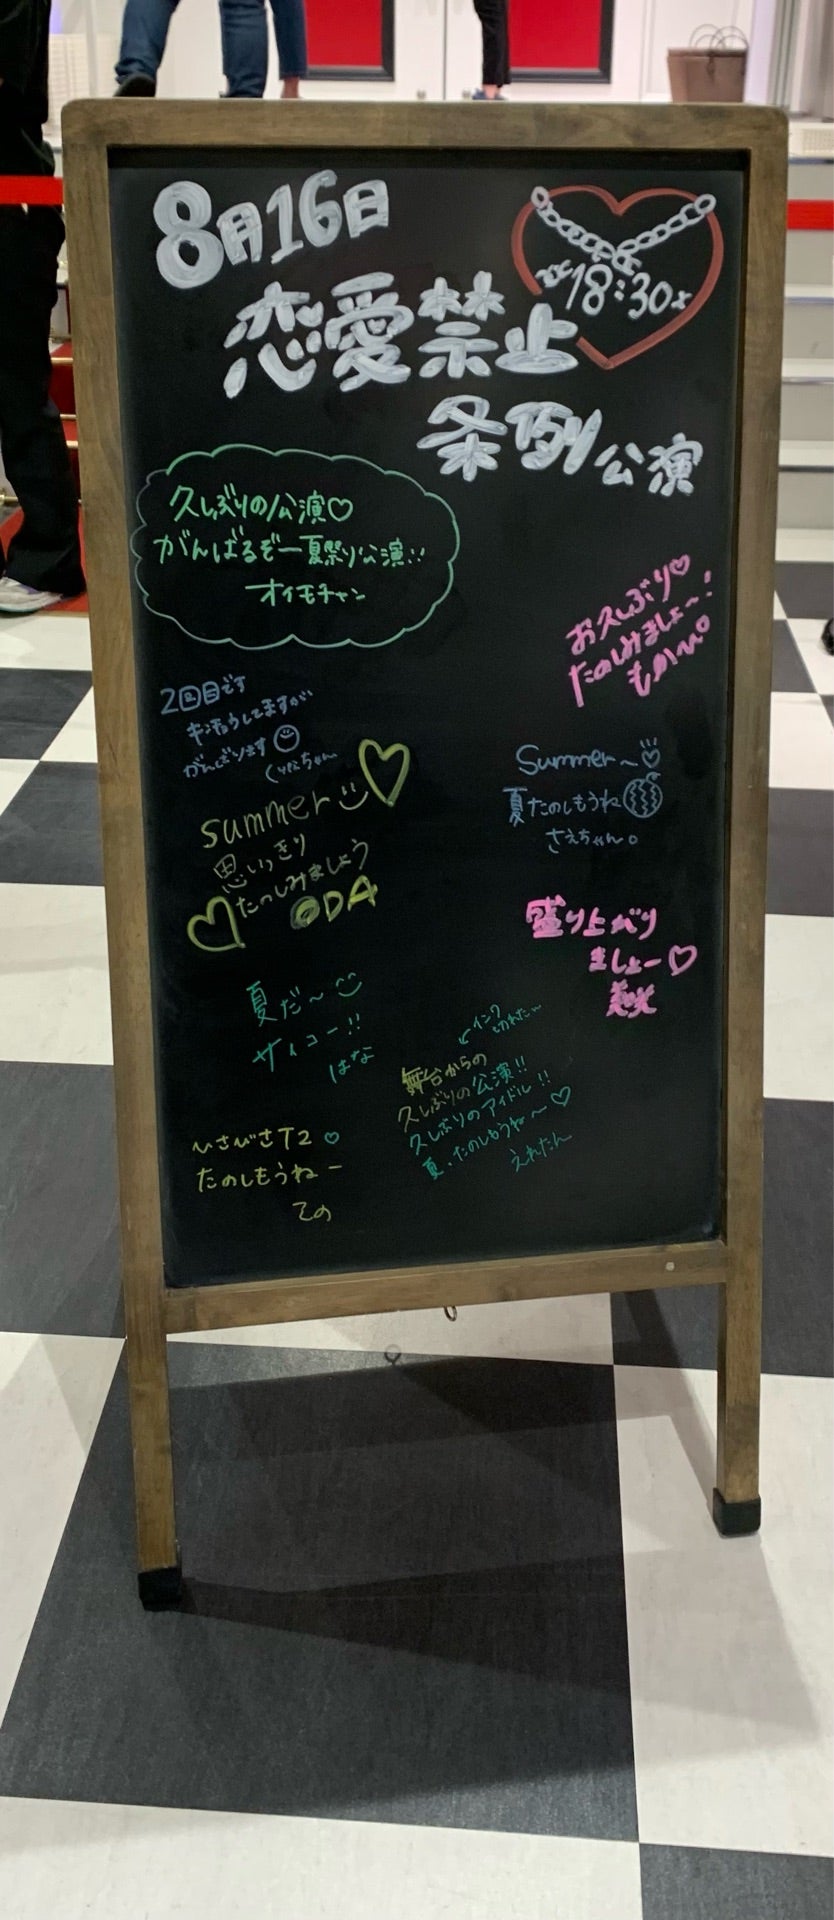 8月16日
18:30
恋愛禁止
条例公演
久しぶりの公演♡
がんばるぞー夏祭り公演!!
オイモチャン
お久しぶり♡
たのしみましょ〜!
もか〜。
2回目です
キンチョウしてますが
がんばります
くりちゃん
summer
思いっきり
たのしみましょう
ODA
Summer〜
夏たのしもうね
さえちゃん。
盛り上がり
ましょー♡
夏だ〜
サイコー!!
はな
インク
切れた〜
舞台からの
久しぶりの公演!!
久しぶりのアイドル!!
夏、たのしもうね〜♡
えれたん
ひさびさT2♡
たのしもうねー
その